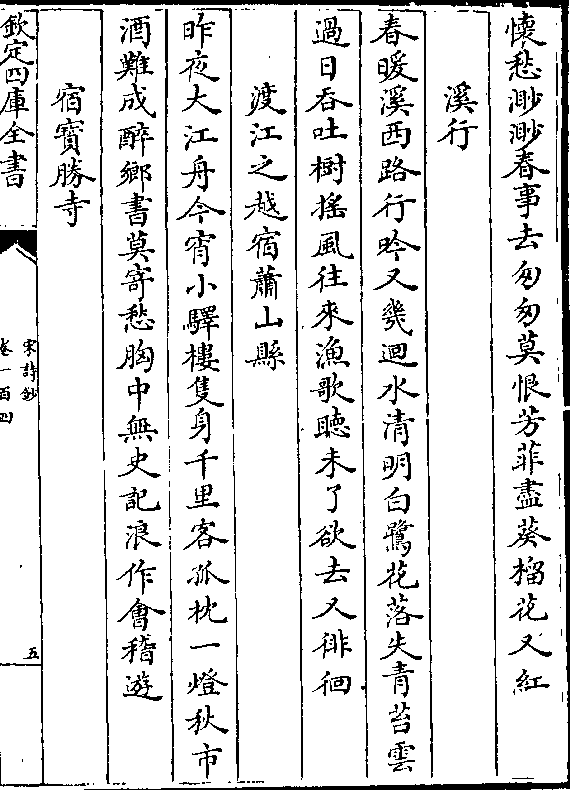 懐愁渺渺春事去匆匆莫恨芳菲盡葵榴花又紅
溪行
春暖溪西路行吟又幾迴水清明白鷺花落失青苔雲
過日吞吐樹揺風往來漁歌聽未了欲去又徘徊
渡江之越宿蕭山縣
昨夜大江舟今宵小驛樓隻身千里客孤枕一燈秋市
酒難成醉鄉書莫寄愁胸中無史記浪作會稽遊
宿寳勝寺
欽定四庫全書
宋詩鈔
卷一百四
五